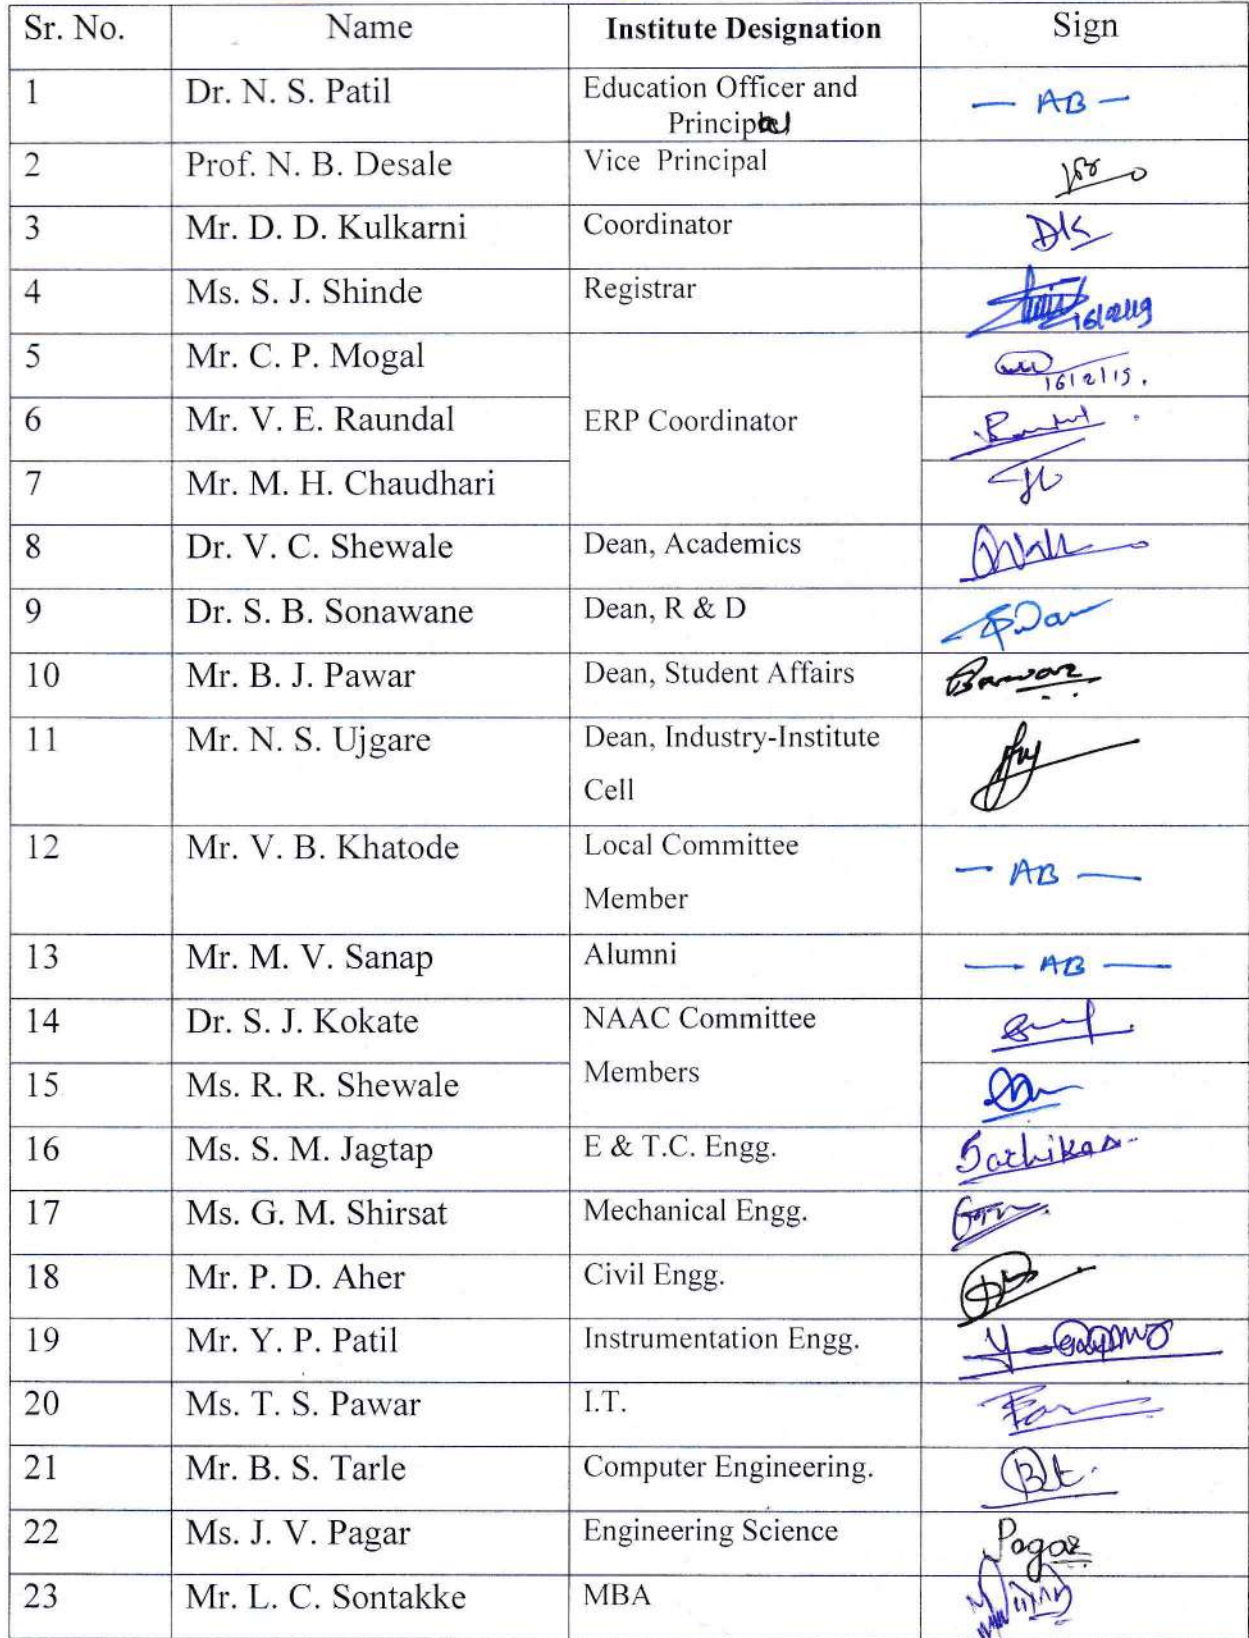 Sr. No. Name Institute Designation Sign
1 Dr. N. S. Patil Education Officer and — AB —
Principal
2 Prof. N. B. Desale Vice Principal
3 Mr. D. D. Kulkarni Coordinator DK
4 Ms. S. J. Shinde Registrar 16/02/19
5 Mr. C. P. Mogal 16/2/19.
6 Mr. V. E. Raundal ERP Coordinator
7 Mr. M. H. Chaudhari
8 Dr. V. C. Shewale Dean, Academics
9 Dr. S. B. Sonawane Dean, R & D
10 Mr. B. J. Pawar Dean, Student Affairs
11 Mr. N. S. Ujgare Dean, Industry-Institute
Cell
12 Mr. V. B. Khatode Local Committee — AB —
Member
13 Mr. M. V. Sanap Alumni — AB —
14 Dr. S. J. Kokate NAAC Committee
15 Ms. R. R. Shewale Members
16 Ms. S. M. Jagtap E & T.C. Engg.
17 Ms. G. M. Shirsat Mechanical Engg.
18 Mr. P. D. Aher Civil Engg.
19 Mr. Y. P. Patil Instrumentation Engg.
20 Ms. T. S. Pawar I.T.
21 Mr. B. S. Tarle Computer Engineering. Bt.
22 Ms. J. V. Pagar Engineering Science Pagar
23 Mr. L. C. Sontakke MBA